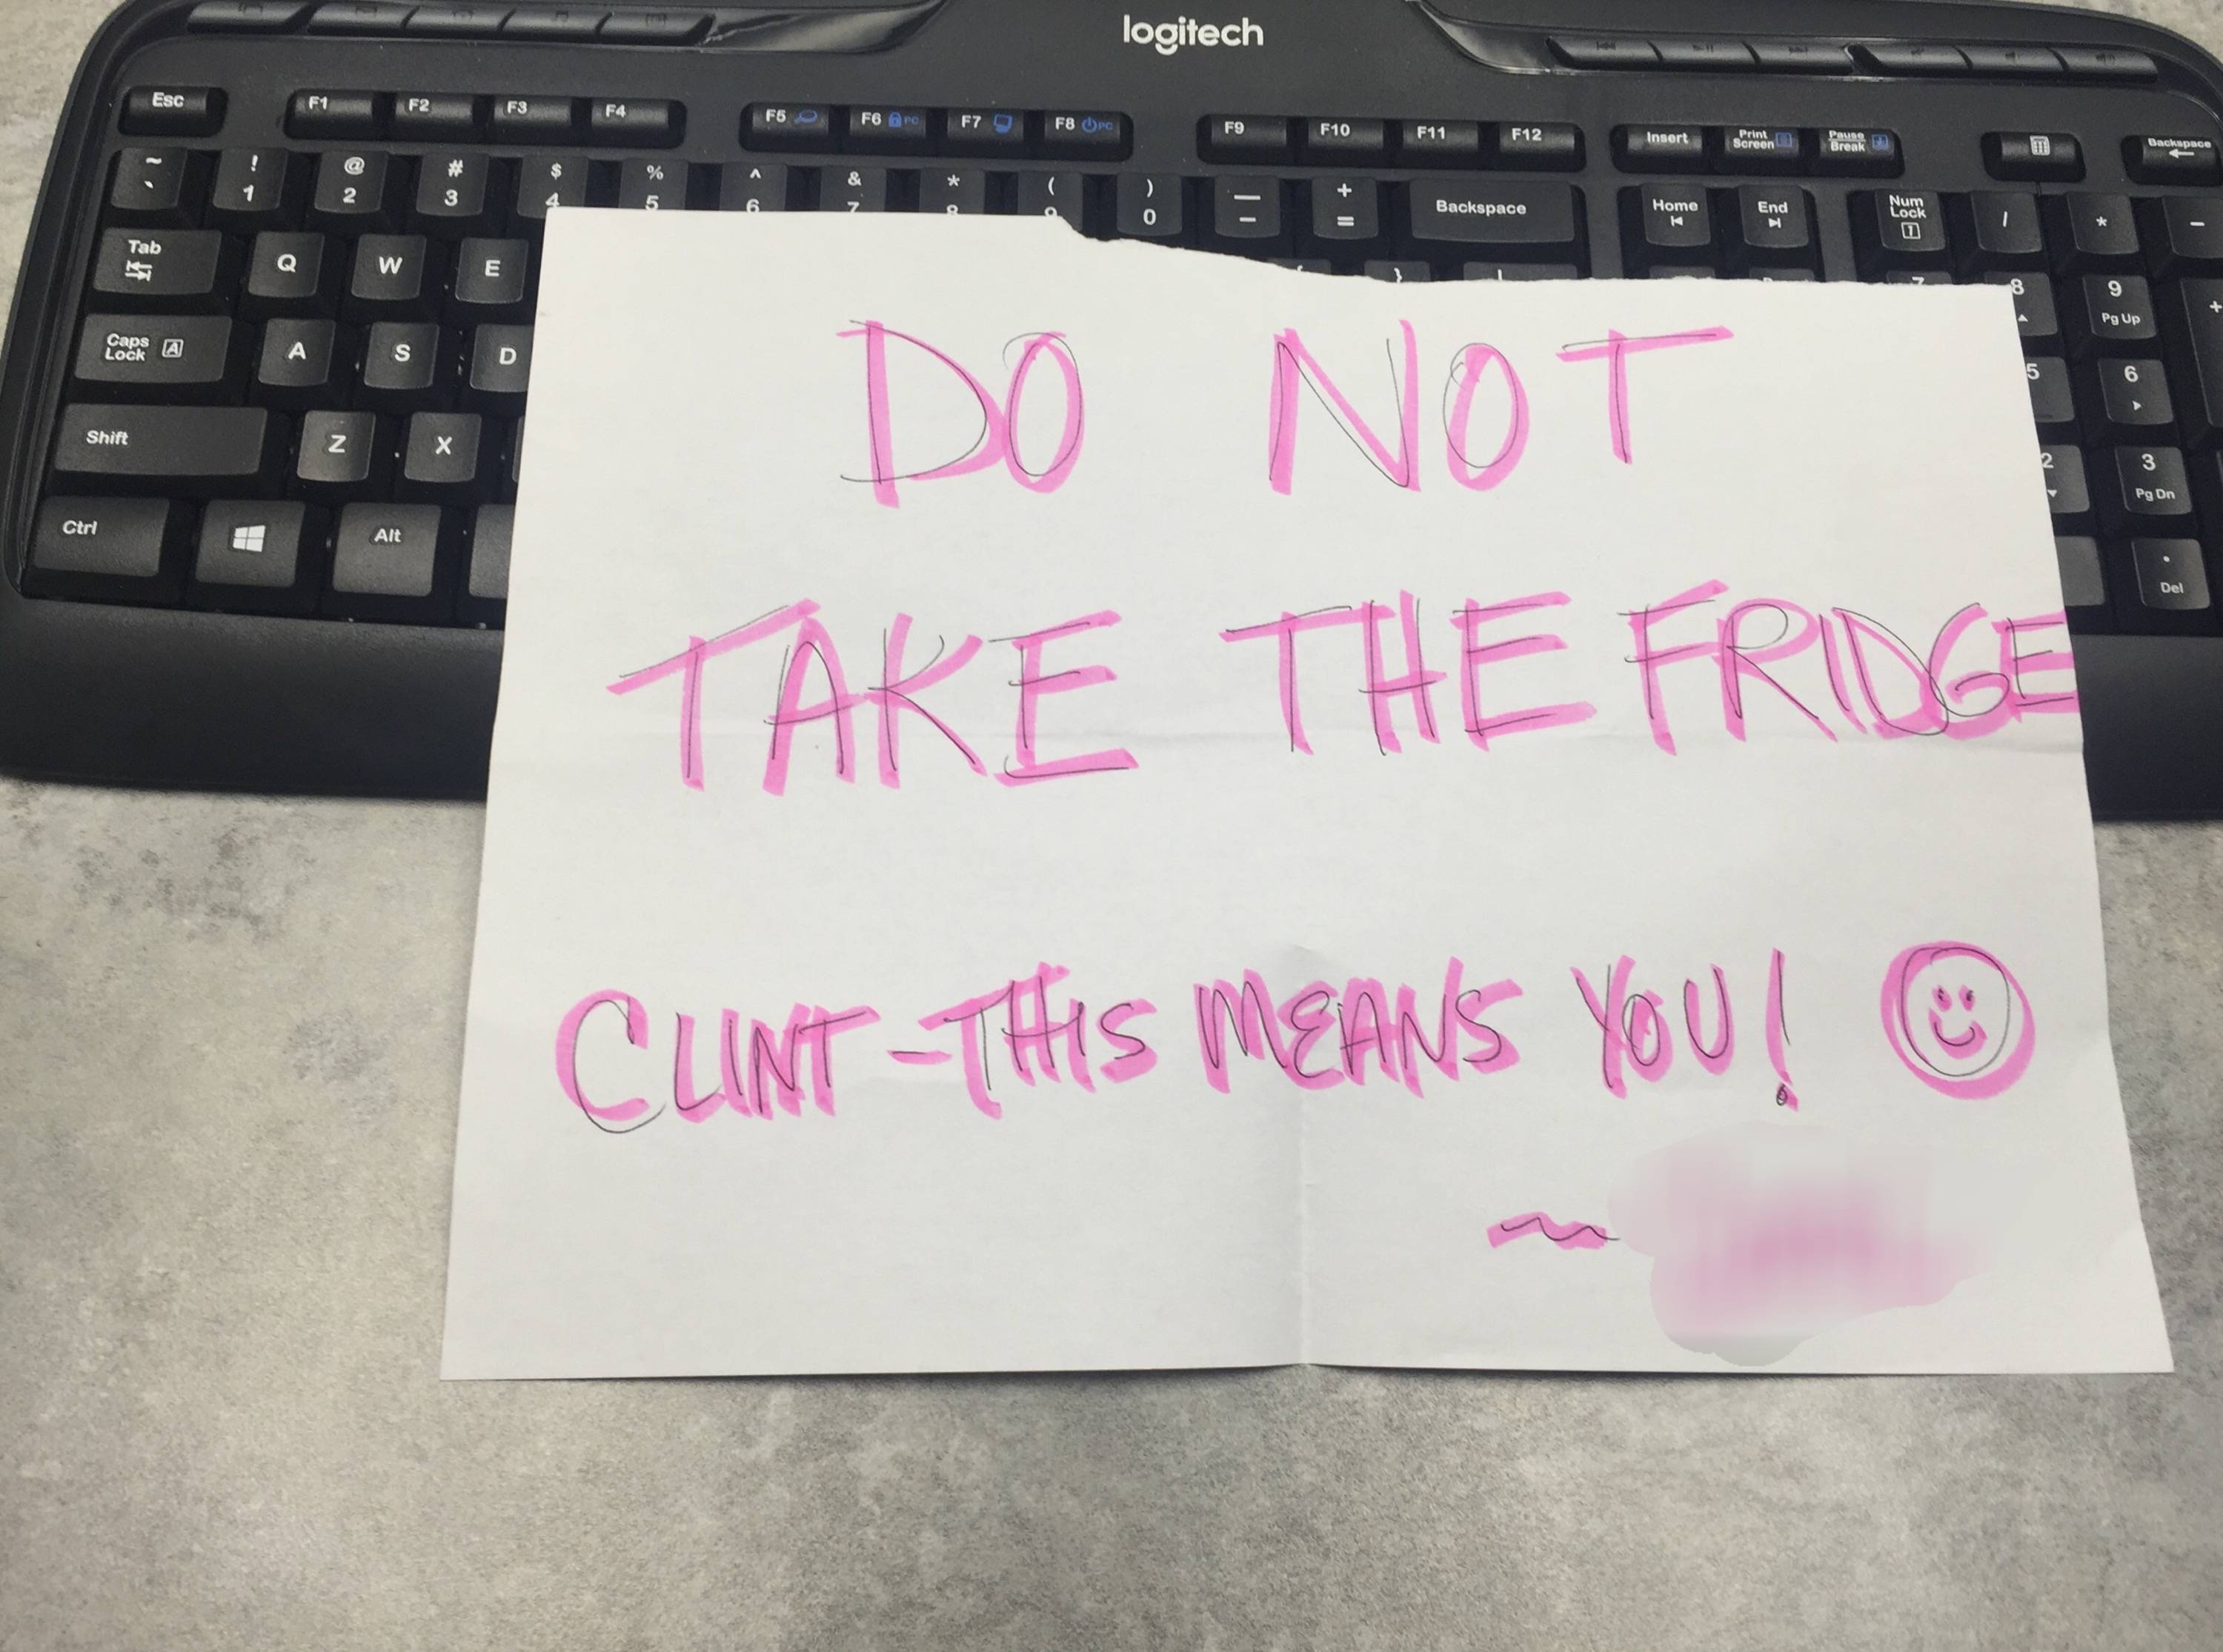 logitech
Esc F1 F2 F3 F4 F5 F6 PC F7 F8 PC F9 F10 F11 F12 Insert Print Screen Pause Break Backspace
~ ` ! 1 @ 2 # 3 $ 4 % 5 ^ 6 & 7 * 8 ( 9 ) 0 — – + = Backspace Home End Num Lock / * –
Tab Q W E } 7 8 9 Pg Up +
Caps Lock A A S D 5 6
Shift Z X 2 3 Pg Dn
Ctrl Alt . Del
DO NOT
TAKE THE FRIDGE
CLINT - THIS MEANS YOU!
~